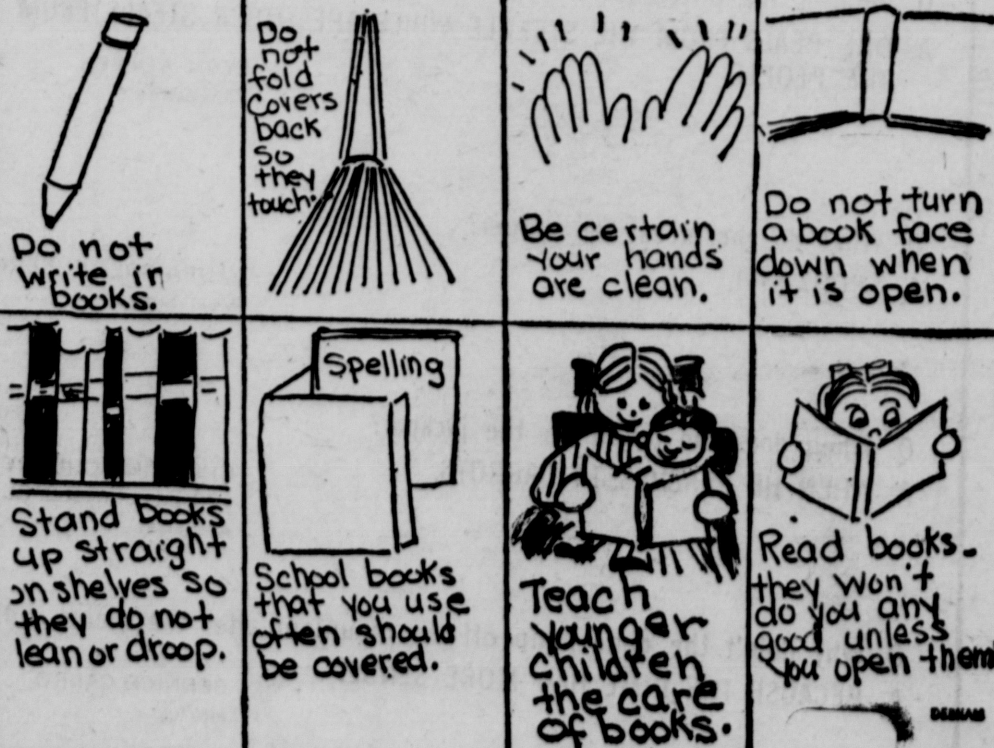 Do not
write in
books.
Do
not
fold
covers
back
so
they
touch.
Be certain
your hands
are clean.
Do not turn
a book face
down when
it is open.
Stand books
up straight
on shelves so
they do not
lean or droop.
Spelling
School books
that you use
often should
be covered.
Teach
younger
children
the care
of books.
Read books-
they won't
do you any
good unless
you open them